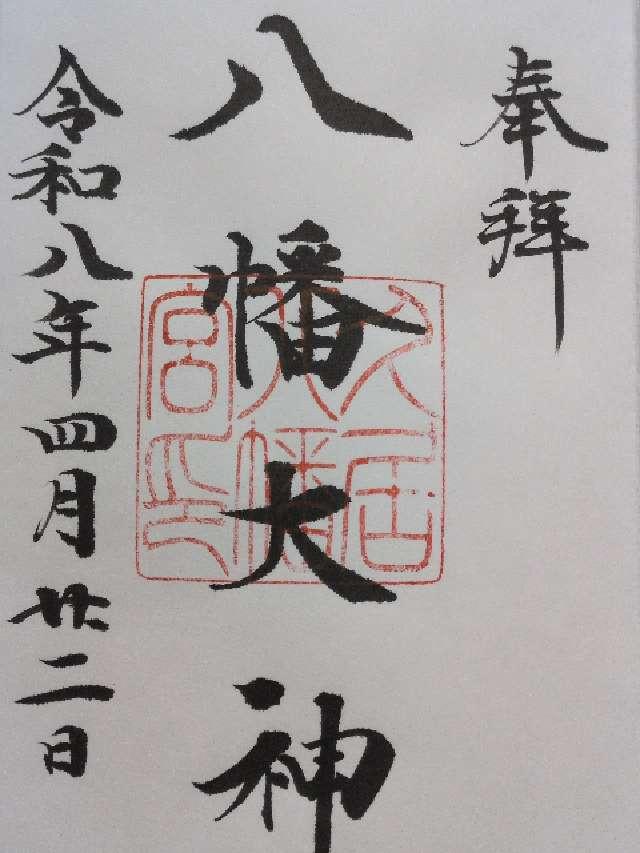 奉拝
八幡大神
久居
八幡
宮印
令和八年四月廿二日